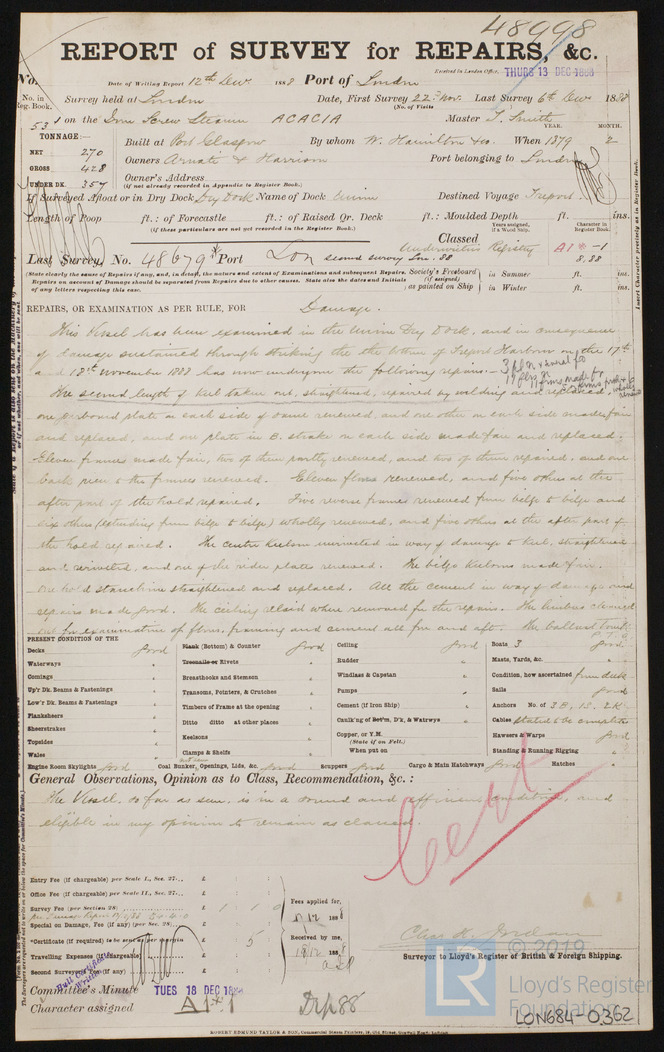 48998
REPORT of SURVEY for REPAIRS, &c.
Received in London Office, THURS 13 DEC 1888
No. Date of Writing Report 12th Dec 1888 Port of London
No. in Reg. Book. Survey held at London Date, First Survey 22nd Nov. Last Survey 6th Dec 1888
(No. of Visits )
53 on the Iron Screw Steamer ACACIA Master T. Smith
TONNAGE:— YEAR. MONTH.
NET 270 Built at Port Glasgow By whom W. Hamilton & Co. When 1879 2
GROSS 428 Owners Arnati & Harrison Port belonging to London
UNDER DK. 357 Owner's Address
(if not already recorded in Appendix to Register Book.)
If Surveyed Afloat or in Dry Dock Dry Dock Name of Dock Union Destined Voyage Treport
Length of Poop ft.: of Forecastle ft.: of Raised Qr. Deck ft.: Moulded Depth ft. ins.
(if these particulars are not yet recorded in the Register Book.)
Years assigned, if a Wood Ship. Character in Register Book.
Classed Underwriters Registry A1 - 1
Last Survey, No. 48679 Port Lon second survey Lon. 88 8,88
(State clearly the cause of Repairs if any, and, in detail, the nature and extent of Examinations and subsequent Repairs.
Repairs on account of Damage should be separated from Repairs due to other causes. State also the dates and Initials
of any letters respecting this case.
Society's Freeboard (if assigned) as painted on Ship in Summer ft. ins.
in Winter ft. ins.
REPAIRS, OR EXAMINATION AS PER RULE, FOR Damage.
This Vessel has been examined in the Union Dry Dock, and in consequence
of damage sustained through striking the the bottom of Treport Harbour on the 17th
and 18th November 1888 has now undergone the following repairs:—
The second length of keel taken out, straightened, repaired by welding and replaced,
one garboard plate on each side of same renewed, and one other on each side made fair
and replaced, and one plate in B. strake on each side made fair and replaced.
Eleven frames made fair, two of them partly renewed, and two of them repaired, and one
back piece to the frames renewed. Eleven floors renewed, and five others at the
after part of the hold repaired. Five reverse frames renewed from bilge to bilge and
six others (extending from bilge to bilge) wholly renewed, and five others at the after part of
the hold repaired. The centre keelson unriveted in way of damage to keel, straightened
and reriveted, and one of the rider plates renewed. The bilge keelsons made fair.
one hold stanchion straightened and replaced. All the cement in way of damage and
repairs made good. The ceiling relaid where removed for the repairs. The limbers cleaned
out for examination of floors, framing and cement all fore and aft. The ballast tank
P.T.O
PRESENT CONDITION OF THE
Decks good
Waterways "
Comings "
Up'r Dk. Beams & Fastenings "
Low'r Dk. Beams & Fastenings "
Planksheers "
Sheerstrakes "
Topsides "
Wales "
Plank (Bottom) & Counter good
Treenails or Rivets "
Breasthooks and Stemson "
Transoms, Pointers, & Crutches "
Timbers of Frame at the opening "
Ditto ditto at other places "
Keelsons "
Clamps & Shelfs "
Ceiling good
Rudder "
Windlass & Capstan "
Pumps "
Cement (if Iron Ship) "
Caulk'ng of Bot'm, D'k, & Watrwys "
Copper, or Y.M.
(State if on Felt.)
When put on
Boats 3 good
Masts, Yards, &c. "
Condition, how ascertained from deck
Sails good
Anchors No. of 3B, 1S. 2K
Cables stated to be complete
Hawsers & Warps good
Standing & Running Rigging "
Engine Room Skylights good Coal Bunker, Openings, Lids, &c. good Scuppers good Cargo & Main Hatchways good Hatches "
General Observations, Opinion as to Class, Recommendation, &c.:
The Vessel, so far as seen, is in a sound and efficient condition, and
eligible in my opinion to remain as classed
Cert
Entry Fee (if chargeable) per Scale I., Sec. 27... £ : :
Office Fee (if chargeable) per Scale II., Sec. 27... £ : :
Survey Fee (per Section 28) £ 1 : 1 : 0
Special on Damage, Fee (if any) (per Sec. 28) £ : :
*Certificate (if required) to be sent as per margin 5
Travelling Expenses (if chargeable) £ : :
Second Surveyor's Fee (if any) £ : :
Fees applied for,
1888
Received by me,
18/12 1888
Hull Certificate Written
Surveyor to Lloyd's Register of British & Foreign Shipping.
Committee's Minute TUES 18 DEC 1888
Character assigned A1 1
Drp88
© 2019
LR
Lloyd's Register
Foundation
LON684-0362
ROBERT EDMUND TAYLOR & SON, Commercial Steam Printers, 19, Old Street, Goswell Road, London.